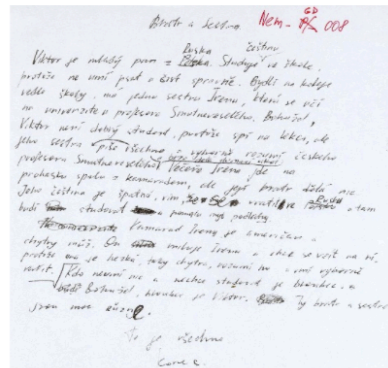 Bratr a Sestra Nem - GD 008
Ruska češtinu
Viktor je mladý pan z Studuje ve škole,
protože ne umí psat a číst spravně. Bydlí na koleje
vedle školy. má jednu sestru Irenu, ktera se učí
na univerzite u profesora Smutnoveselého. Bohužel,
Viktor není dobrý student, protože spí na lekce, ale
jeho sestra piše všechno a vyborně rozumi českeho
profesora Smutnoveselého
Večeře Irena jde na
prohasku spolu z kamaradem, ale jejé bratr dělá nic
Jeho čeština je špatná, vím, že se vratit , tam
budí studovat a pomalu myt podlahy
Kamarad Ireny je američan -
chytry muž. On miluje Irenu a chce se vzít na ní,
protože ona je hezká, taky chytra, rozumí ho a umí vyborně
vařit. Kdo neumí nic a nechce studovat je
Bohužel, je Viktor. Ty bratr a sestra
jsou moc
To je všechno